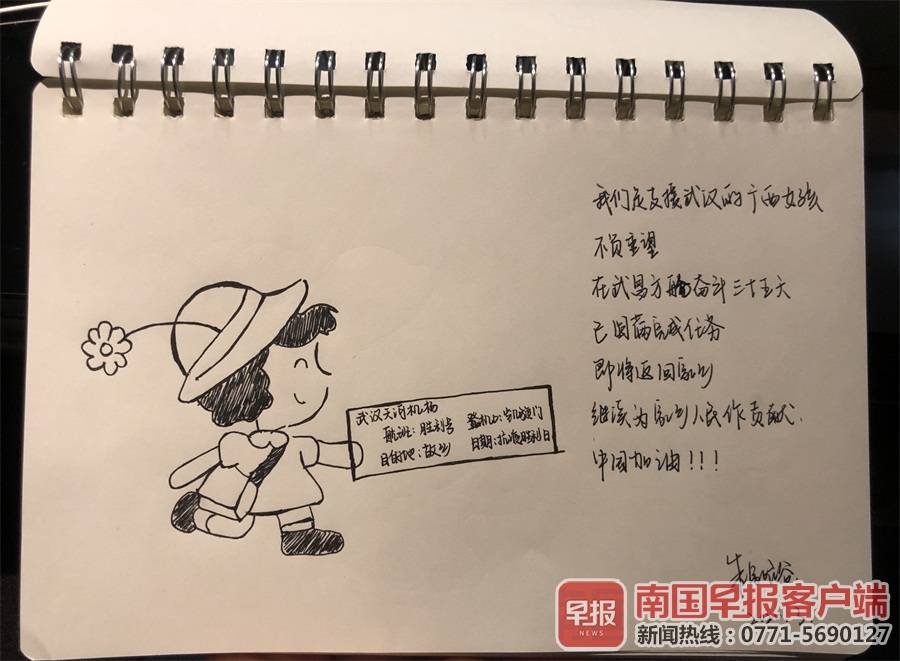 我们是支援武汉的广西女孩
不负重望
在武昌方舱奋斗三十五天
已圆满完成任务
即将返回家乡
继续为家乡人民作贡献.
中国加油!!!
武汉天河机场
航班:胜利号
登机口:凯旋门
目的地:故乡
日期:抗疫胜利日
早报
NEWS
南国早报客户端
新闻热线:0771-5690127